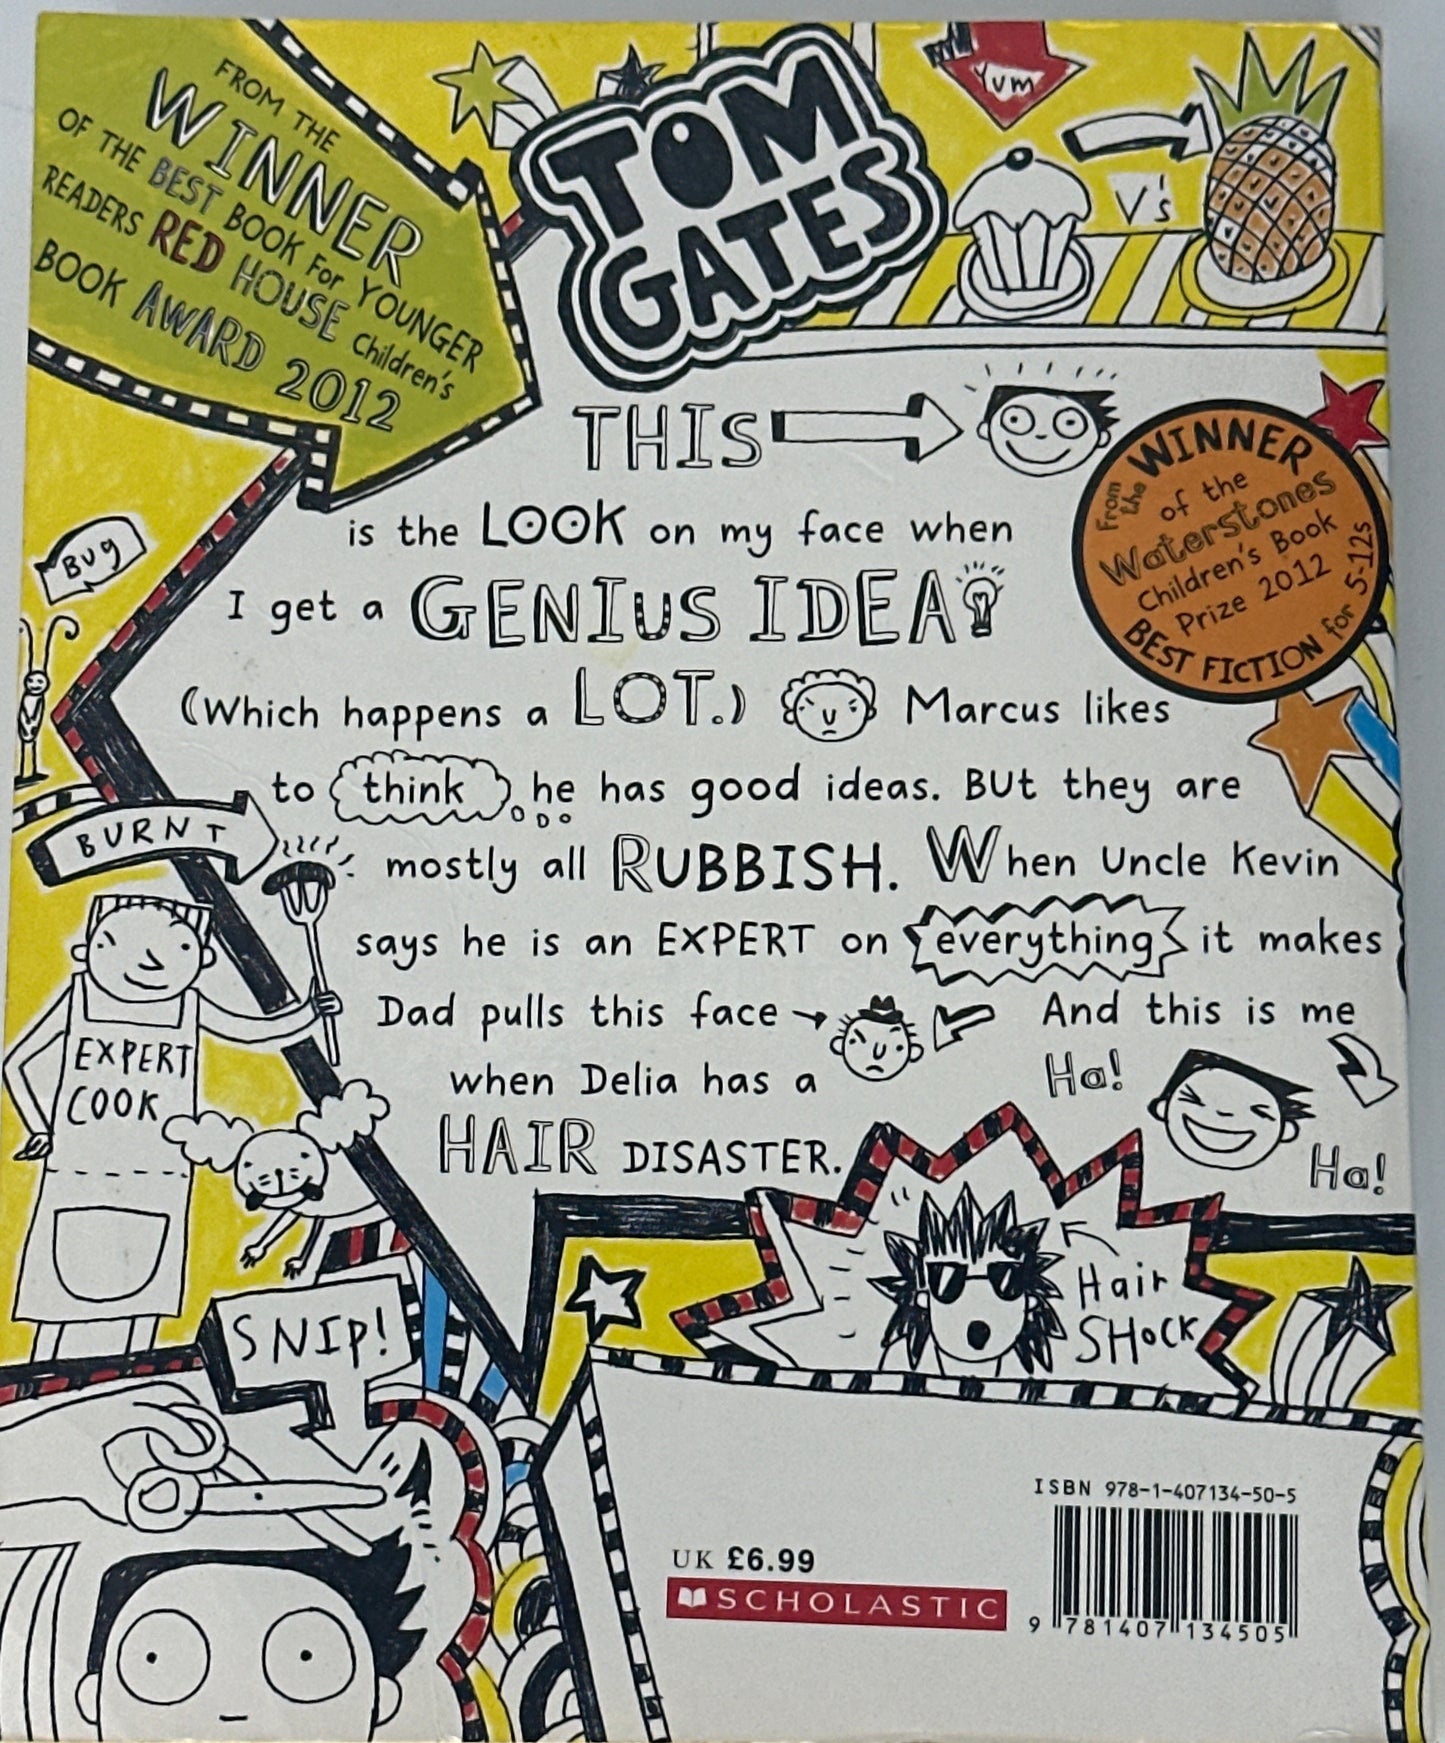 FROM THE
WINNER
OF THE BEST BOOK For YOUNGER
READERS RED HOUSE Children's
BOOK AWARD 2012
TOM
GATES
Yum
V's
THIS
is the LOOK on my face when
I get a GENIUS IDEA
(Which happens a LOT.) Marcus likes
to think he has good ideas. BUt they are
mostly all RUBBISH. When Uncle Kevin
says he is an EXPERT on everything it makes
Dad pulls this face And this is me
when Delia has a Ha!
HAIR DISASTER.
Ha!
From the WINNER
of the
Waterstones
Children's Book
Prize 2012
BEST FICTION for 5-12s
Bug
BURNT
EXPERT
COOK
SNIP!
Hair
SHOCK
ISBN 978-1-407134-50-5
UK £6.99
SCHOLASTIC
9 781407 134505